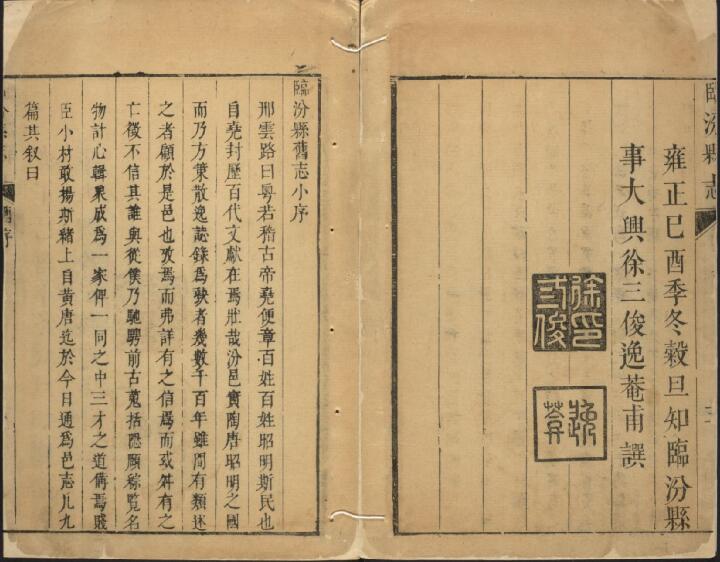 臨汾縣志
雍正巳酉季冬穀旦知臨汾縣
事大興徐三俊逸菴甫譔
徐三俊印
逸菴
臨汾縣舊志小序
邢雲路曰粤若稽古帝堯便章百姓百姓昭明斯民也
自堯封歷百代文獻在焉壯哉汾邑實陶唐昭明之國
而乃方策散逸誌錄爲缺者幾數千百年雖間有類述
之者顧於是邑也攷焉而弗詳有之信焉而或舛有之
亡徵不信其誰與從僕乃馳騁前古蒐括隱顯綜覽名
物計心輯衆成爲一家俾一同之中三才之道備焉賤
臣小材敢揚斯緒上自黃唐迄於今日通爲邑志凡九
篇其叙曰
舊序